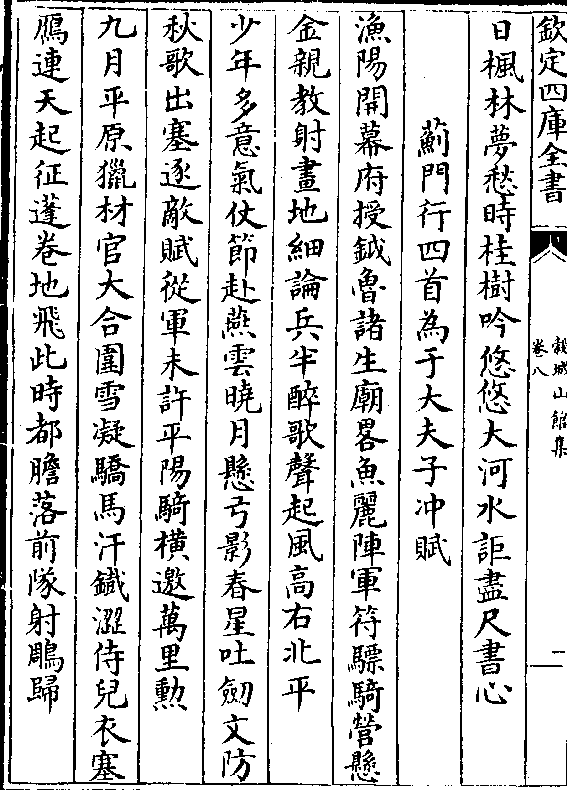 欽定四庫全書
穀城山館集
卷八
一
日楓林夢愁時桂樹吟悠悠大河水詎盡尺書心
薊門行四首為于大夫子冲賦
漁陽開幕府授鉞魯諸生廟畧魚麗陣軍符驃騎營懸
金親教射畫地細論兵半醉歌聲起風高右北平
少年多意氣仗節赴燕雲曉月懸弓影春星吐劒文防
秋歌出塞逐敵賦從軍未許平陽騎橫邀萬里勲
九月平原獵材官大合圍雪凝驕馬汗鐵澀侍兒衣塞
鴈連天起征蓬卷地飛此時都膽落前隊射鵰歸